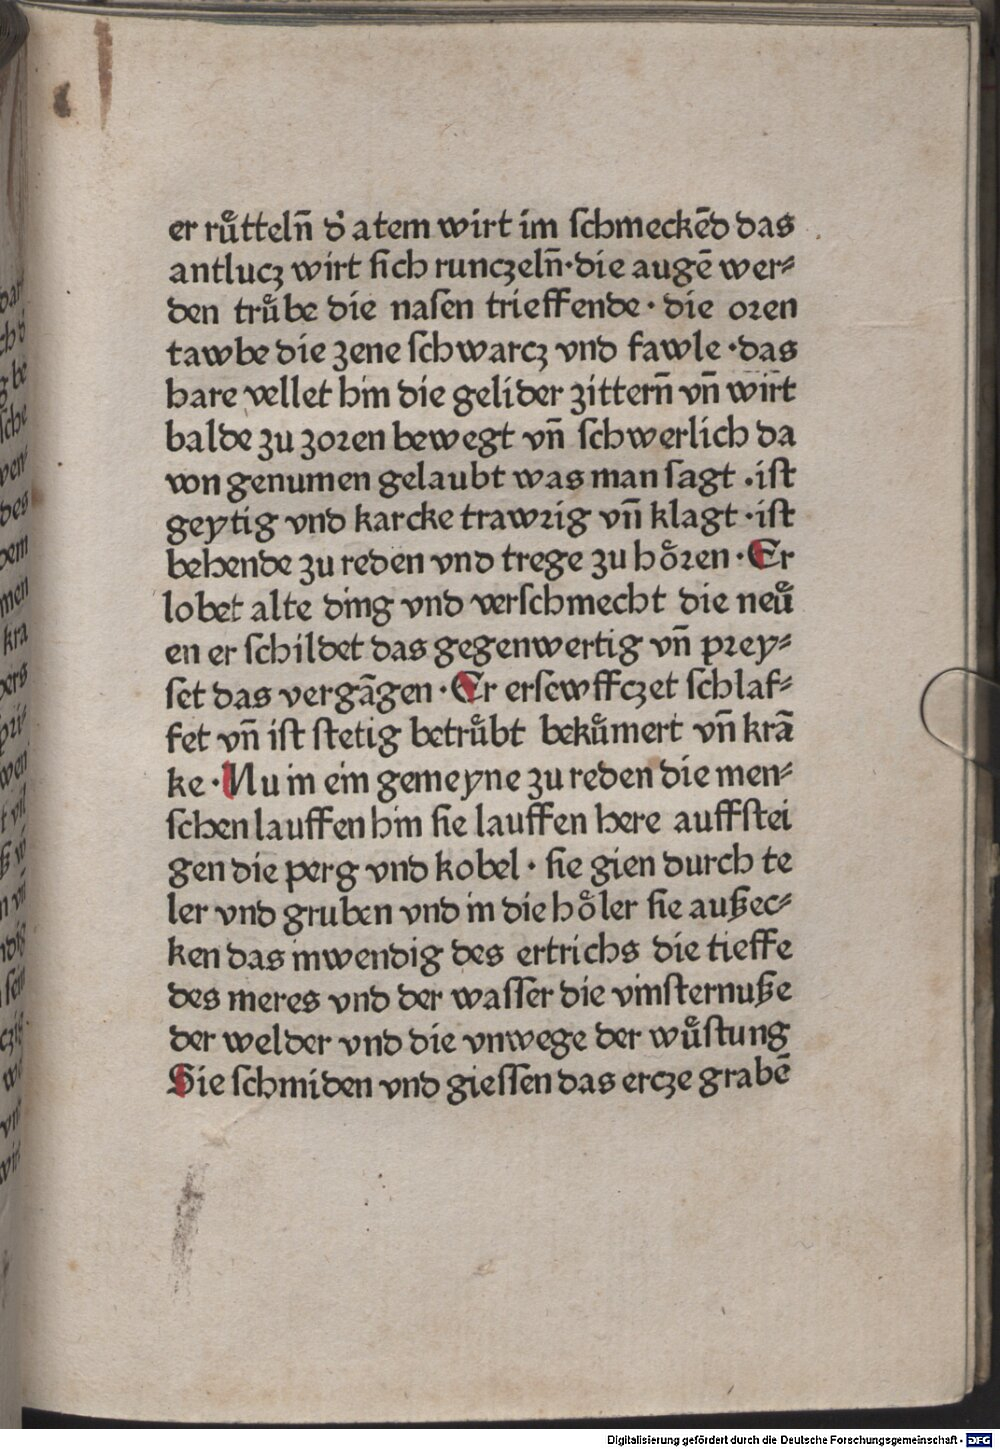 er růtteln̄ d̕ atem wirt im ſchmeckēd das
antlucz wirt ſich runczeln̄·die augē wer⸗
den trůbe die naſen trieffende · die oꝛen
tawbe die zene ſchwarcz vnd fawle ·das
hare vellet hin die gelider zittern̄ vn̄ wirt
balde zu zoꝛen bewegt vn̄ ſchwerlich da
von genumen gelaubt was man ſagt ·iſt
geytig vnd karcke trawꝛig vn̄ klagt ·iſt
behende zu reden vnd trege zu hoͤꝛen · Er
lobet alte ding vnd verſchmecht die neuͤ
en er ſchildet das gegenwertig vn̄ pꝛey⸗
ſet das vergāgen · Er erſewffczet ſchlaf⸗
fet vn̄ iſt ſtetig betrůbt bekůmert vn̄ krā
ke · Nu in ein gemeyne zu reden die men⸗
ſchen lauffen hin ſie lauffen here auffſtei
gen die perg vnd kobel · ſie gien durch te
ler vnd gruben vnd in die hoͤler ſie außec⸗
ken das inwendig des ertrichs die tieffe
des meres vnd der waſſer die vinſternuße
der welder vnd die vnwege der wůſtung
Sie ſchmiden vnd gieſſen das ercze grabē
Digitalisierung gefördert durch die Deutsche Forschungsgemeinschaft - DFG